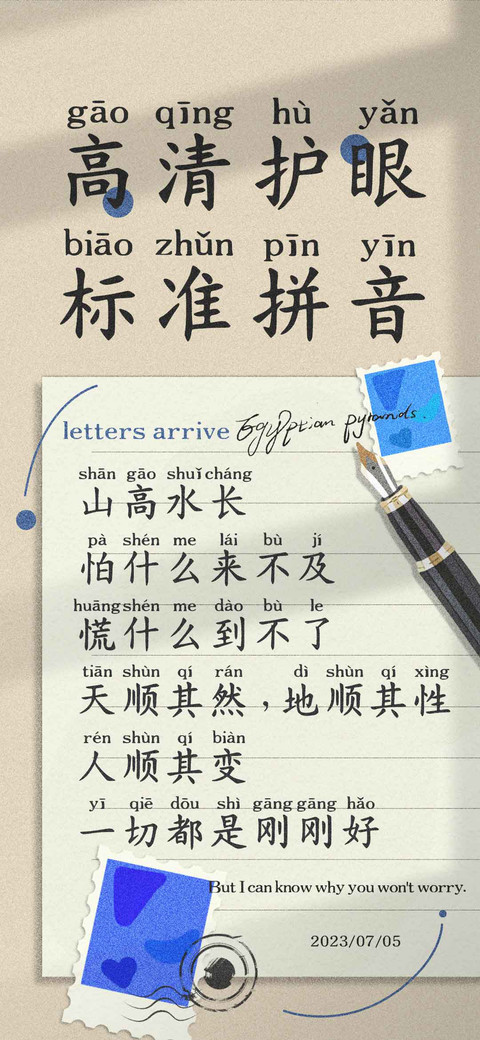 gāo qīng hù yǎn
高清护眼
biāo zhǔn pīn yīn
标准拼音
letters arrive Egyptian pyramids.
shān gāo shuǐ cháng
山高水长
pà shén me lái bù jí
怕什么来不及
huāng shén me dào bù le
慌什么到不了
tiān shùn qí rán dì shùn qí xìng
天顺其然，地顺其性
rén shùn qí biàn
人顺其变
yī qiē dōu shì gāng gāng hǎo
一切都是刚刚好
But I can know why you won't worry.
2023/07/05